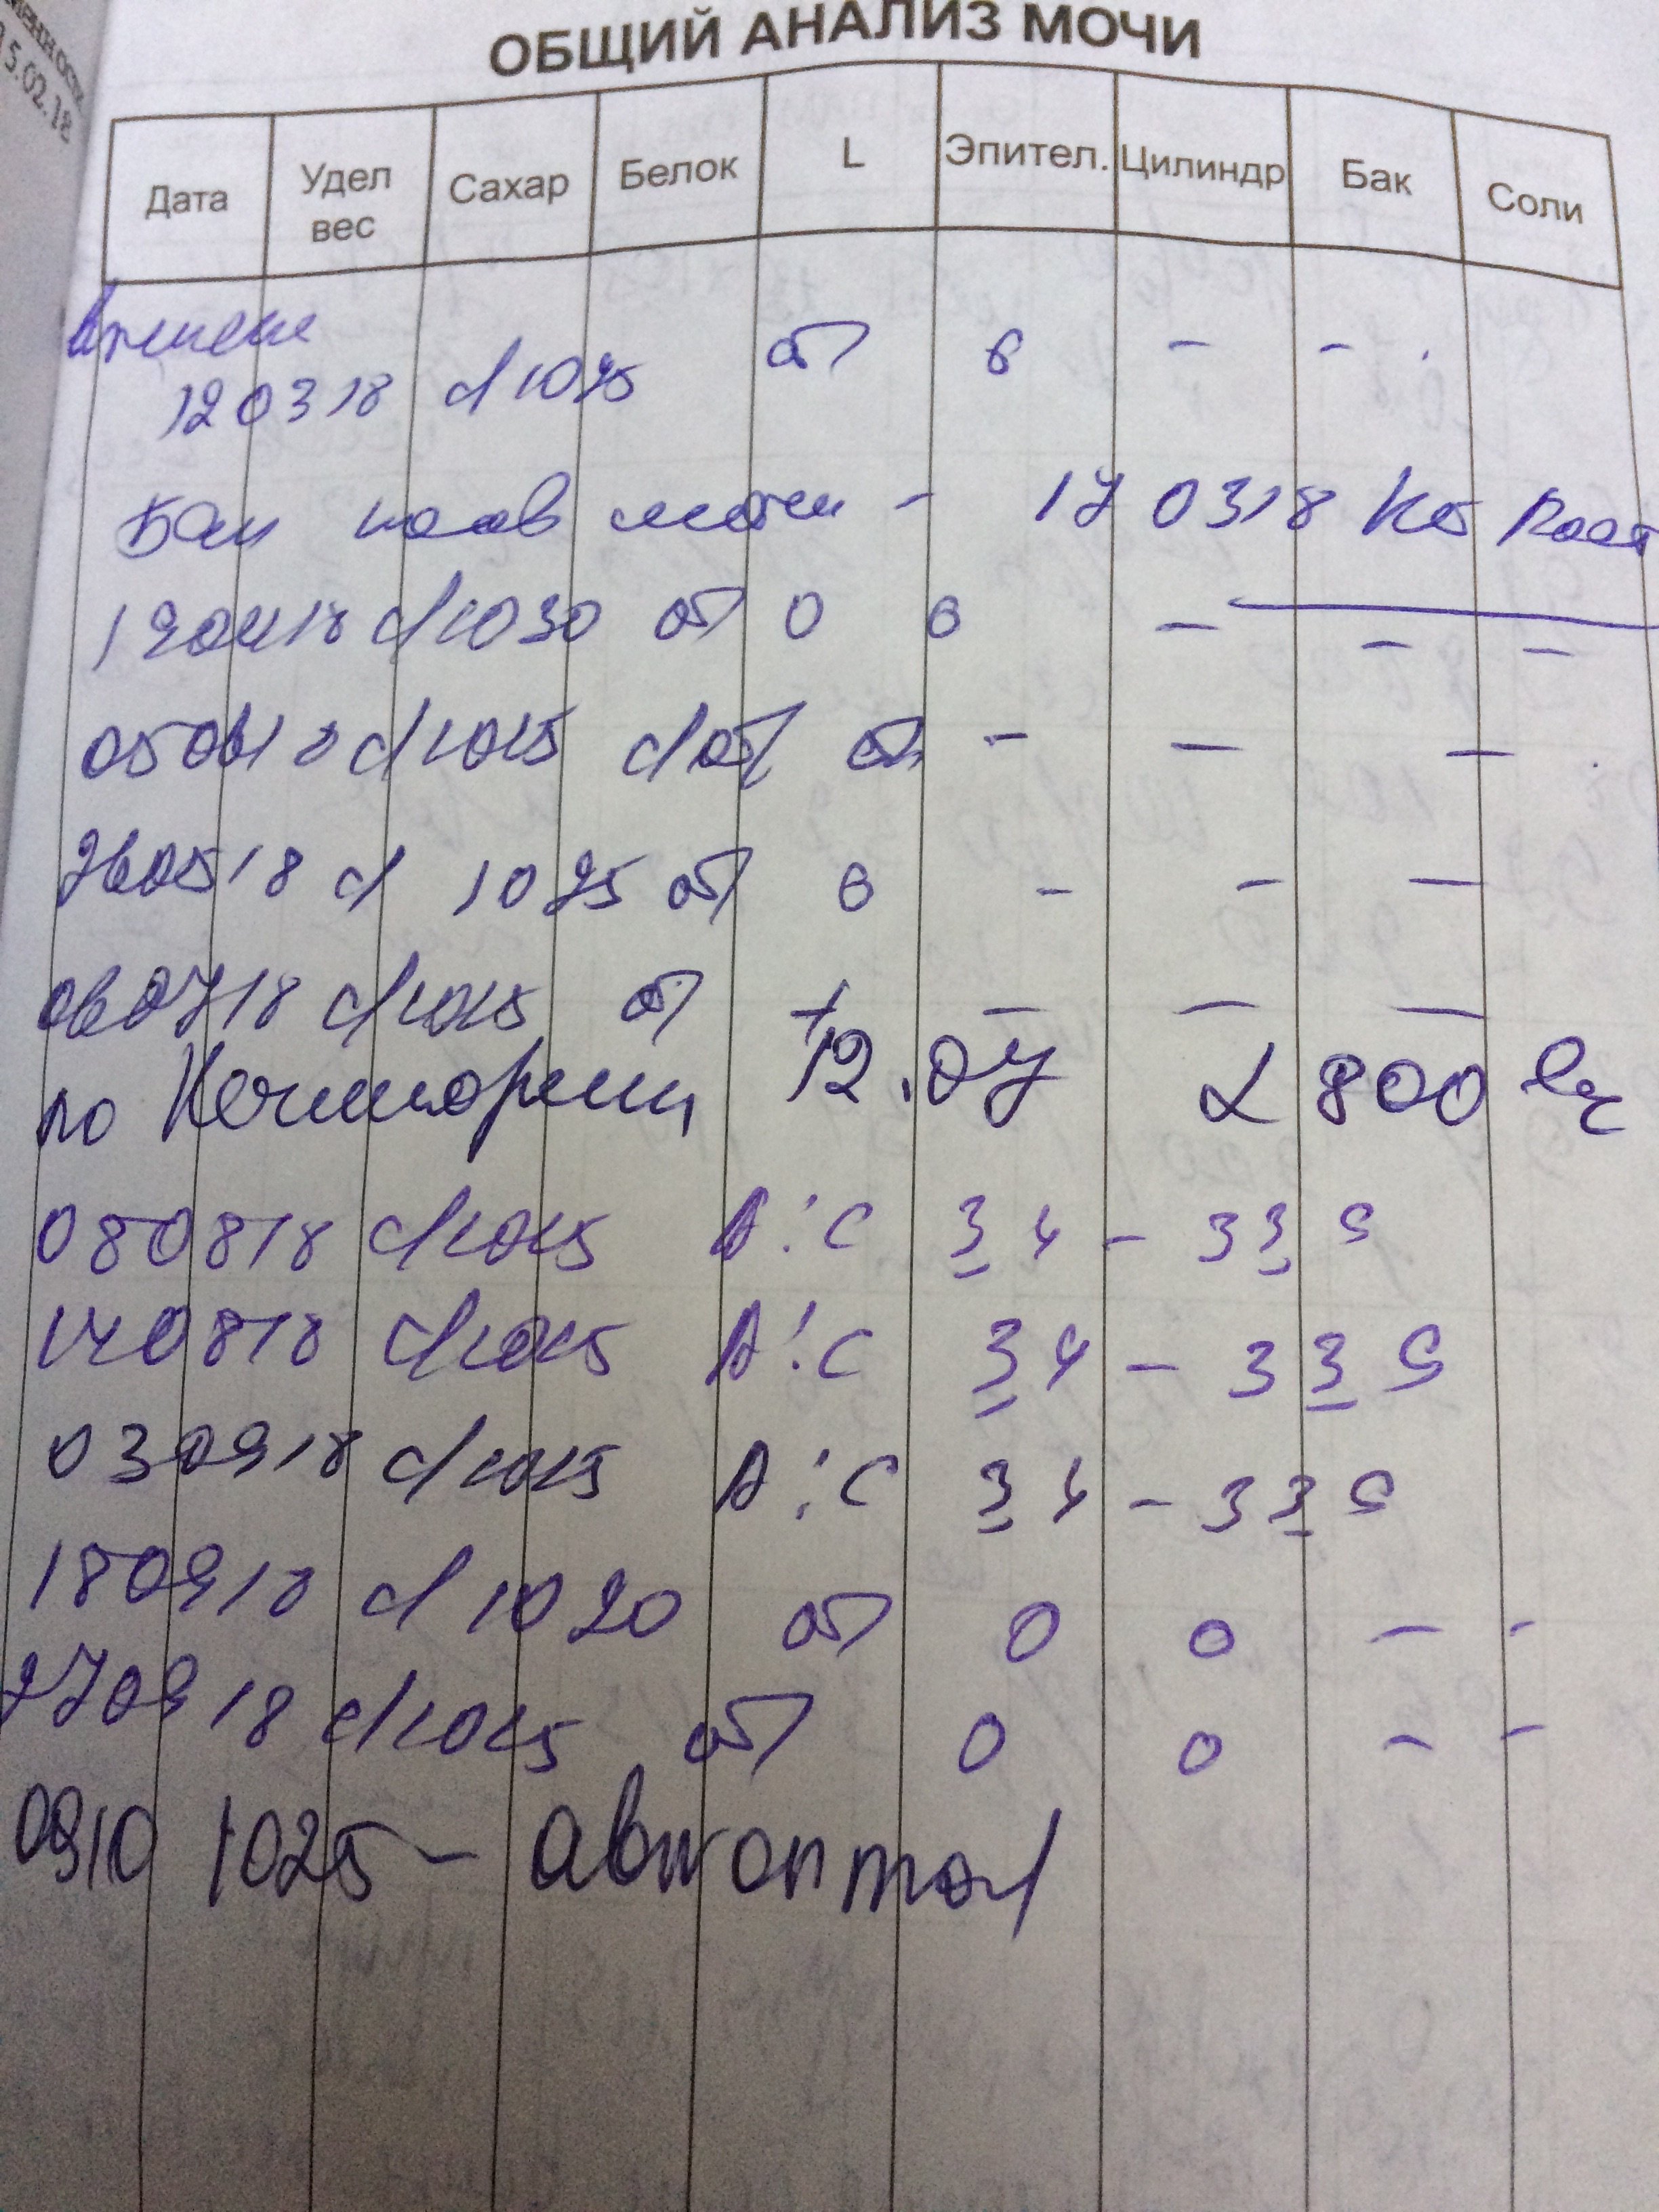 15.02.18
ОБЩИЙ АНАЛИЗ МОЧИ
Дата Удел вес Сахар Белок L Эпител. Цилиндр Бак Соли
120318 d 1025 от 6 - -
Бак посев мочи - 170318 Кб Рост
190418 d 1030 от 0 0 - - -
d 1015 d от от - - -
260518 d 1025 от 0 - - -
060718 d 1015 от + - - -
по Нечипоренц 12.07 L 800 Er
080818 d 1015 A:C 3 4 - 3 3 9
140818 d 1015 A:C 3 4 - 3 3 9
030918 d 1015 A:C 3 4 - 3 3 9
180918 d 1020 от 0 0 - -
270918 d 1015 от 0 0 - -
0910 1025 -